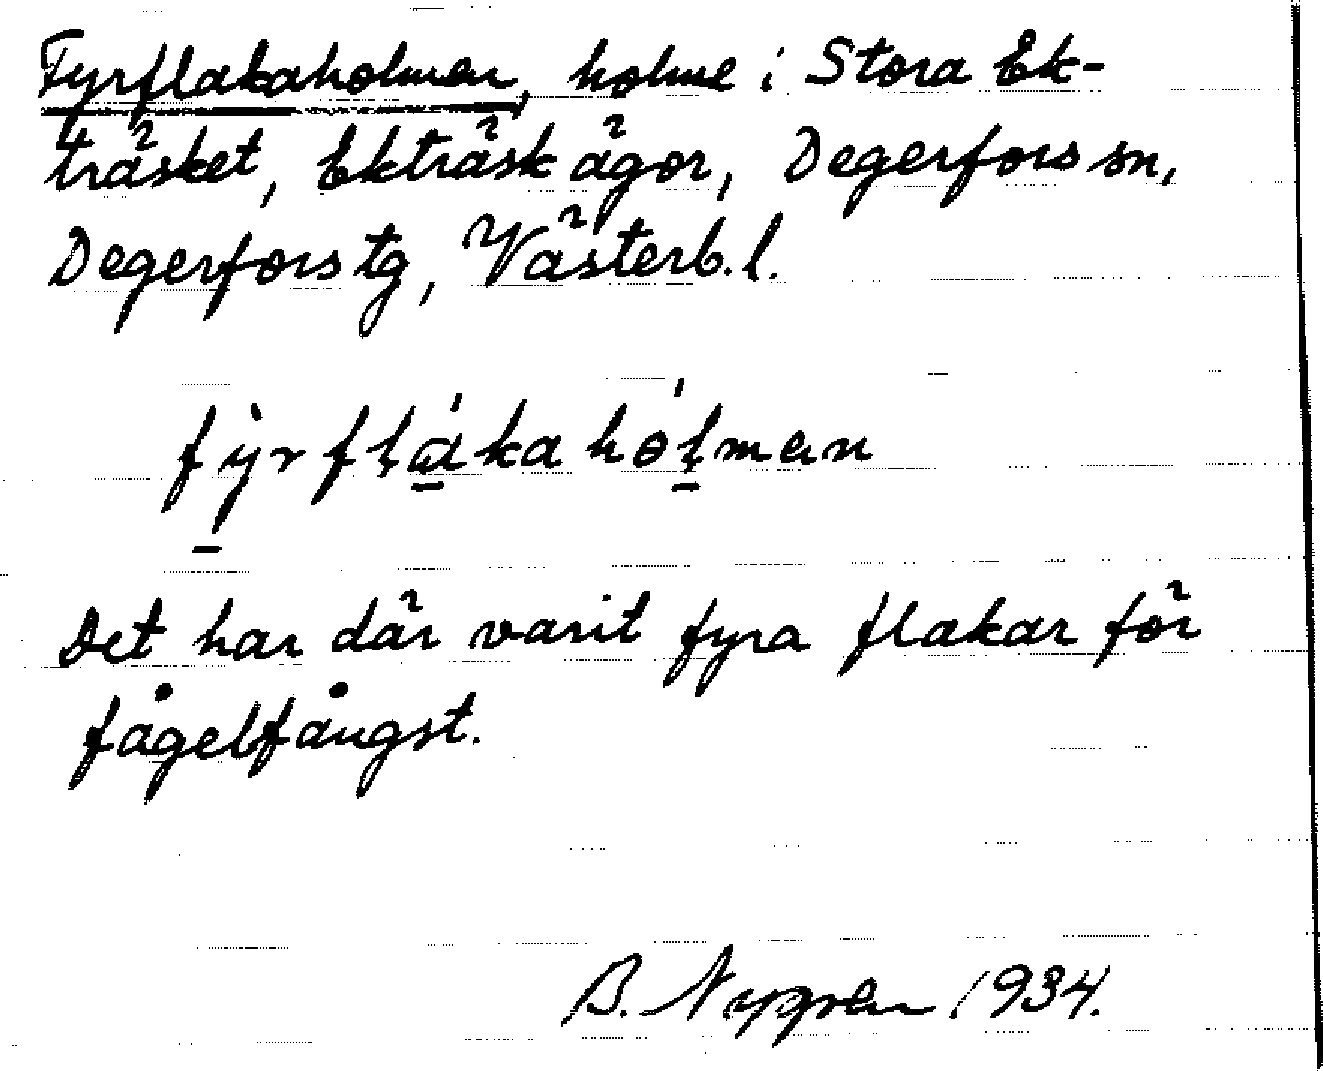 Fyrflakaholmen, holme i Stora Ek-
träsket, Ekträsk ägor, Degerfors sn,
Degerfors tg, Västerb. l.
fỳrflákahólman
Det har där varit fyra flakar för
fågelfångst.
B. Nygren 1934.